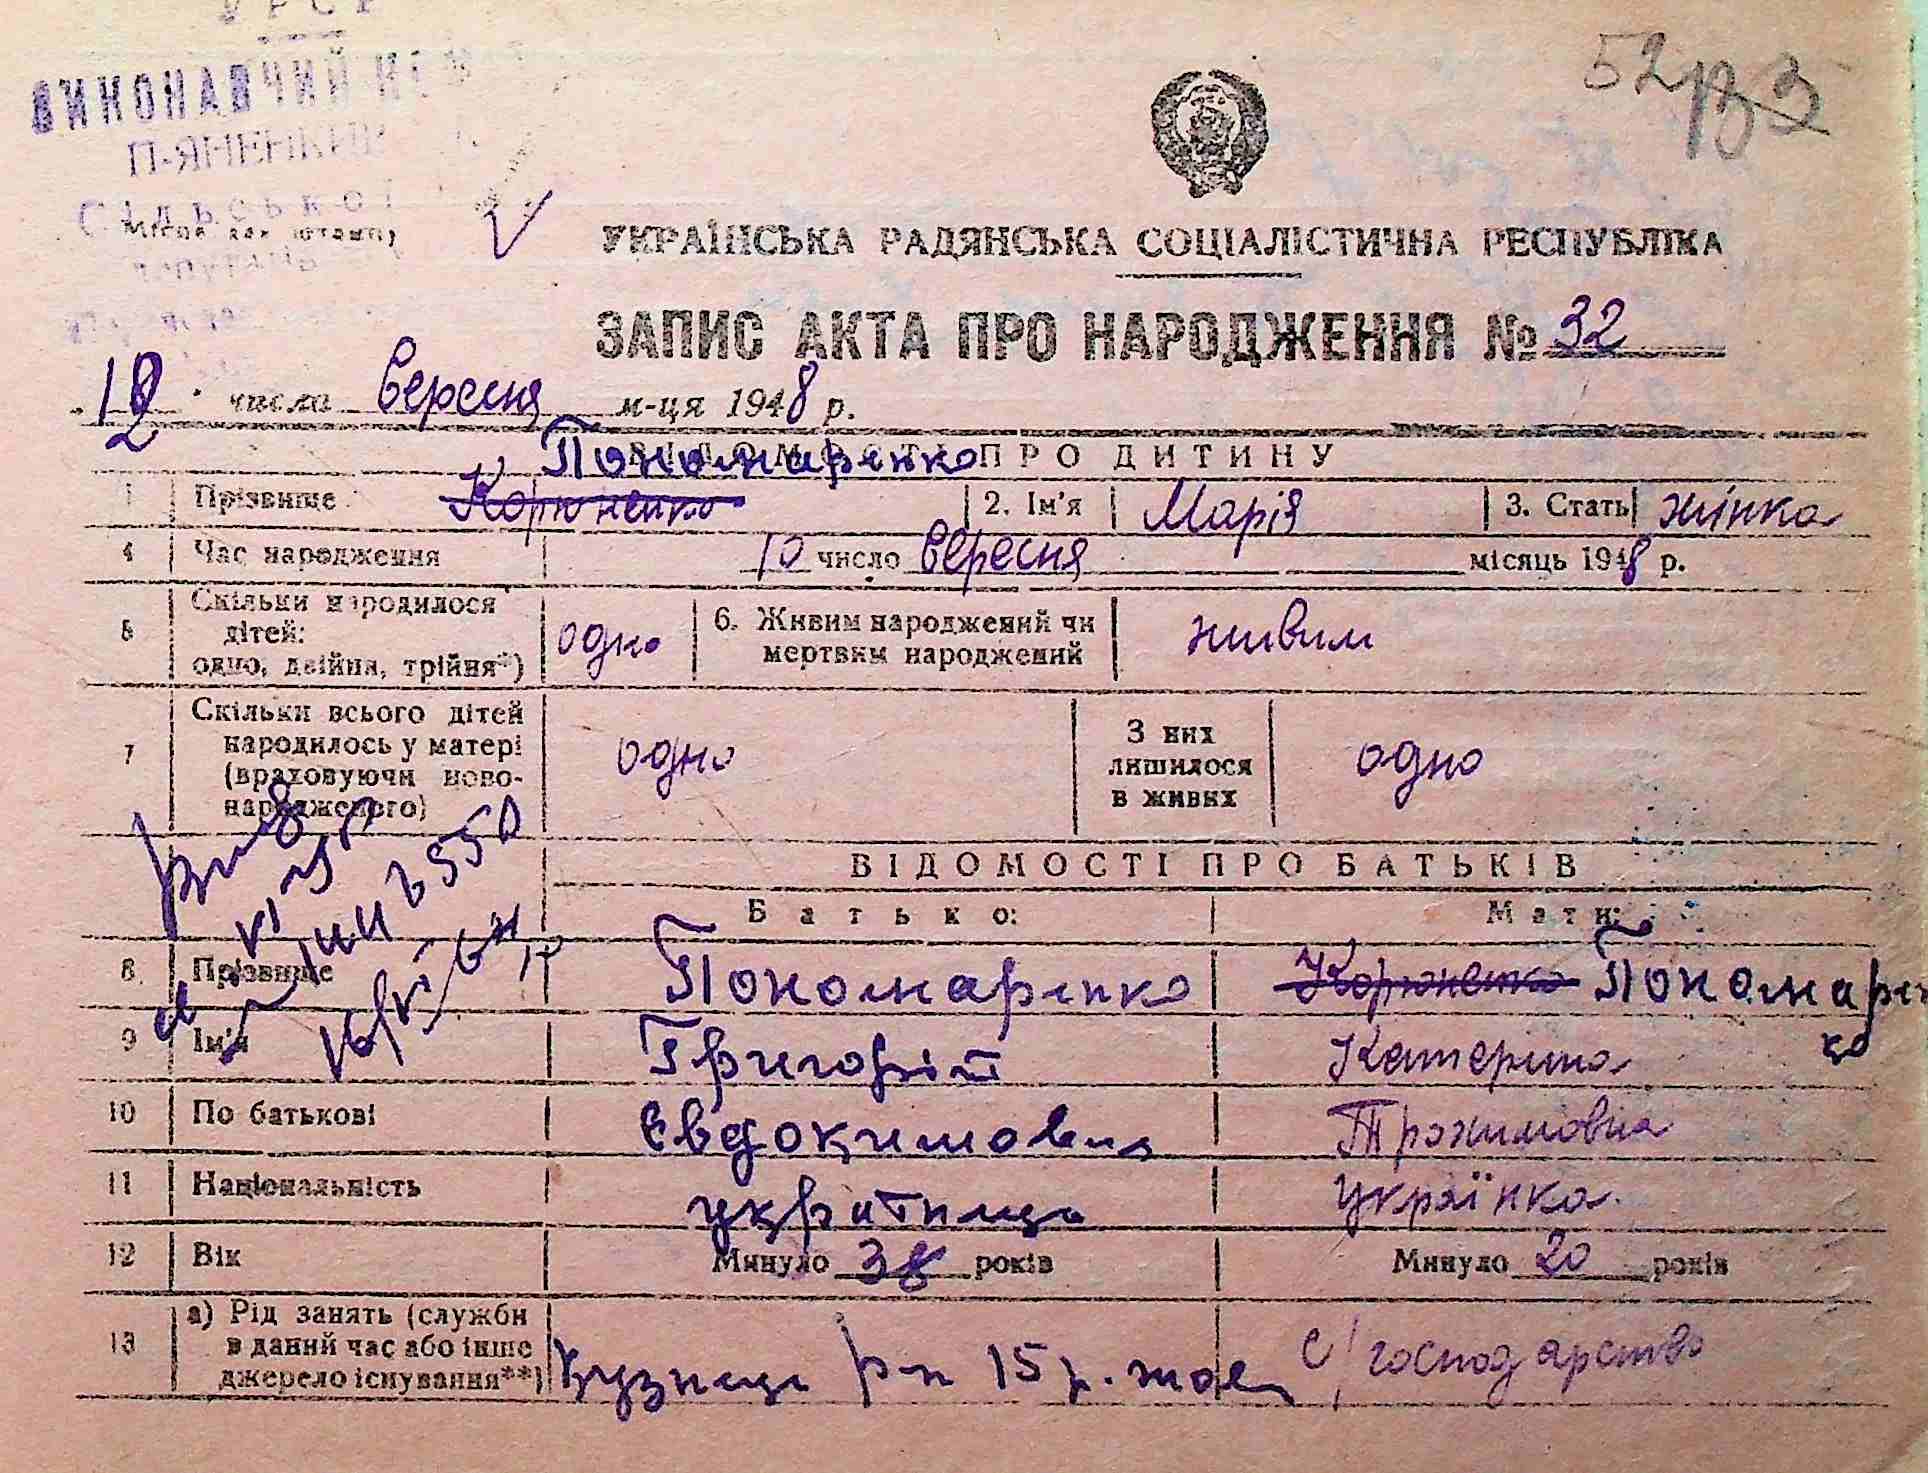 УРСР
52
ВИКОНАВЧИЙ
П-ЯНЕНКІВ
Сільської
Місце для штампу
УКРАЇНСЬКА РАДЯНСЬКА СОЦІАЛІСТИЧНА РЕСПУБЛІКА
ЗАПИС АКТА ПРО НАРОДЖЕННЯ № 32
12 числа Вересня м-ця 1948 р.
ВІДОМОСТІ ПРО ДИТИНУ
Пономаренко
1 Прізвище Корюненко 2. Ім'я Марія 3. Стать жінка
4 Час народження 10 число Вересня місяць 1948 р.
5 Скільки народилося дітей: одно, двійня, трійня*) одно 6. Живим народжений чи мертвим народжений живим
7 Скільки всього дітей народилось у матері (враховуючи ново-народженого) одно З них лишилося в живих одно
ВІДОМОСТІ ПРО БАТЬКІВ
Батько: Мати:
8 Прізвище Пономаренко Корюненко Пономаренко
9 Ім'я Григорій Катерина
10 По батькові Евдокимович Трохимовна
11 Національність українець українка
12 Вік Минуло 38 років Минуло 20 років
13 а) Рід занять (служби в даний час або інше джерело існування**) Кузнец 15 с/господарство